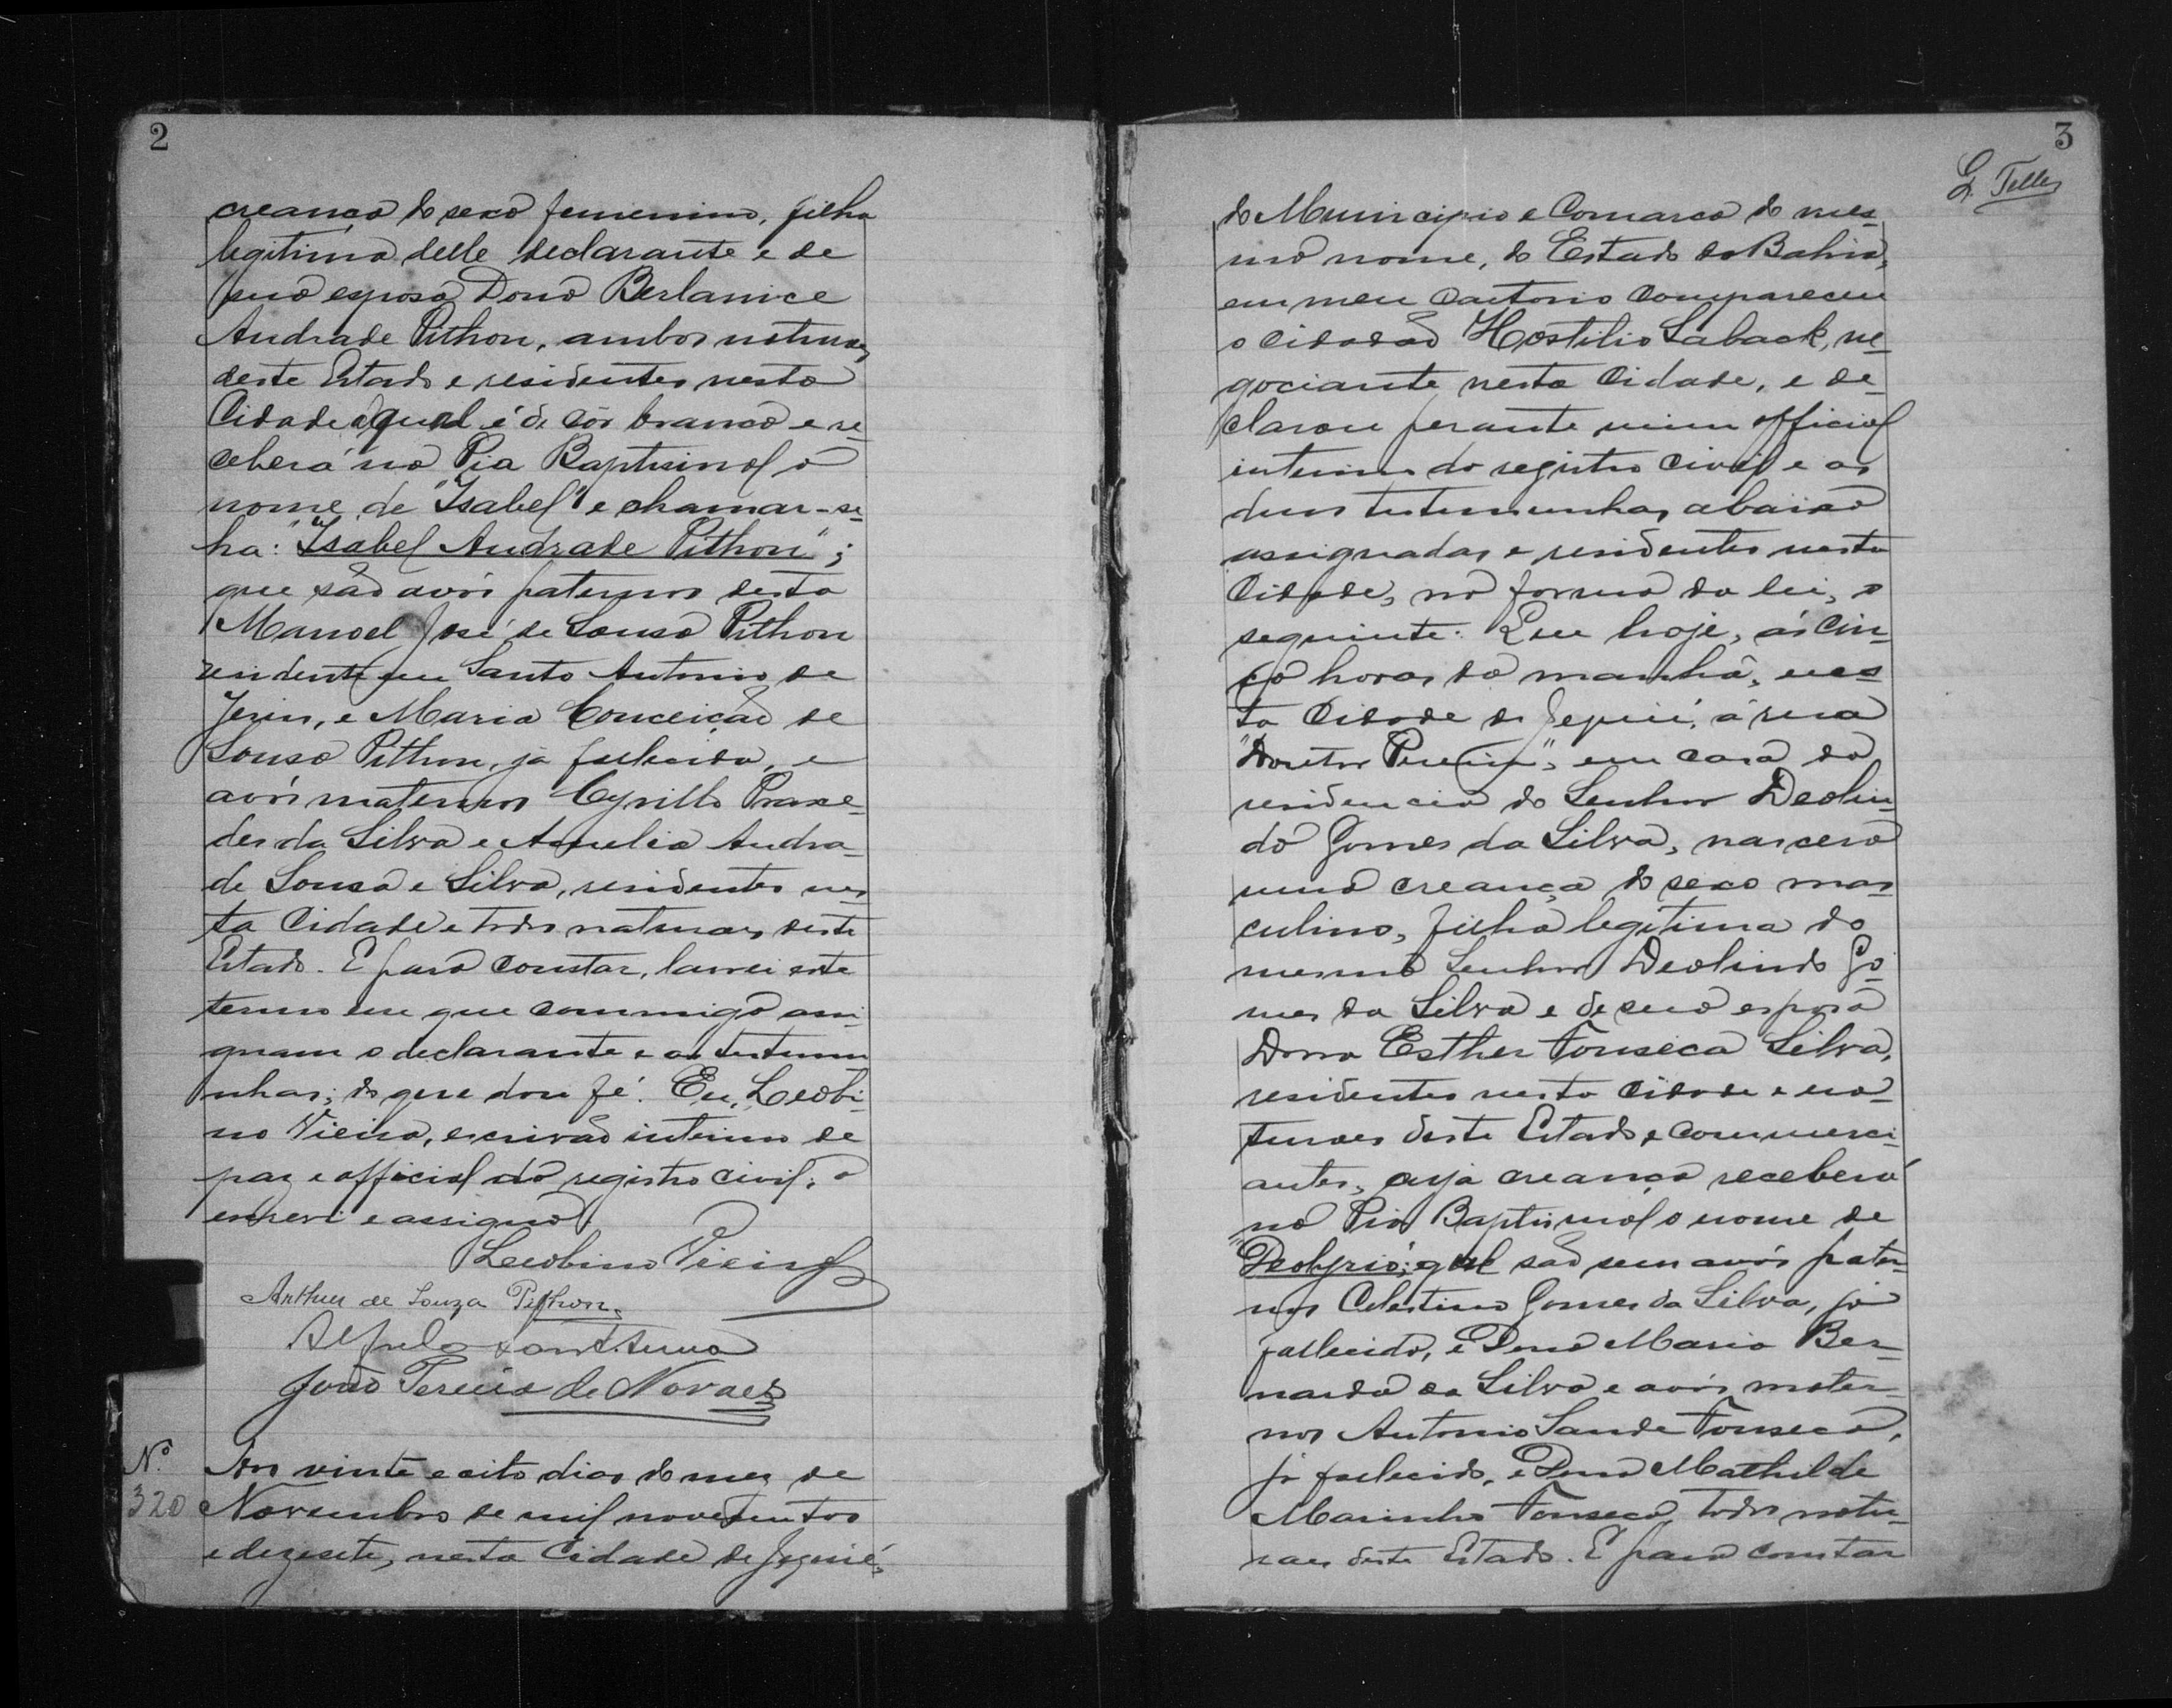 2
creança do sexo femenino, filha
legitima delle declarante e de
sua esposa Dona Berlanice
Andrade Pithon, ambos naturaes
deste Estado e residentes nesta
Cidade a qual é de côr branca e re-
ceberá na Pia Baptismal o
nome de "Isabel" e chamar-se-
ha: "Isabel Andrade Pithon";
que são avós paternos desta
Manoel José de Sousa Pithon
residente em Santo Antonio de
Jesus, e Maria Conceição de
Sousa Pithon, já fallecida, e
avós maternos Cyrillo Praxe-
des da Silva e Amelia Andra-
de Sousa e Silva, residentes nes-
ta Cidade e todos naturaes deste
Estado. E para constar, lavrei este
termo em que commigo assi-
gnam o declarante e as testemu-
nhas; do que dou fé. Eu, Leobi-
no Vieira, escrivão interino de
paz e official do registro civil, o
escrevi e assigno.
Leobino Vieira
Arthur de Souza Pithon.
Alfredo Sant'Anna
João Pereira de Novaes
Nº 320
Aos vinte e oito dias do mez de
Novembro de mil novecentos
e dezesete, nesta Cidade de Jequié,
3
G. Telles
do Municipio e Comarca do mes-
mo nome, do Estado da Bahia,
em meu Cartorio compareceu
o cidadão Hostilio Saback, ne-
gociante nesta Cidade, e de-
clarou perante mim official
interino do registro civil e as
duas testemunhas abaixo
assignadas e residentes nesta
Cidade, na forma da lei, o
seguinte: Que hoje, ás cin-
co horas da manhã, nes-
ta Cidade de Jequié, á rua
"Doutor Pereira", em casa da
residencia do Senhor Deolin-
do Gomes da Silva, nascera
uma creança do sexo mas-
culino, filha legitima do
mesmo Senhor Deolindo Go-
mes da Silva e de sua esposa
Dona Esther Fonseca Silva,
residentes nesta Cidade e na-
turaes deste Estado e commerci-
antes, cuja creança receberá
na Pia Baptismal o nome de
qual são seus avós pater-
nos Celestino Gomes da Silva, já
fallecido, e Dona Maria Ber-
narda da Silva e avós mater-
nos Antonio Sande Fonseca,
já fallecido, e Dona Mathilde
Marinho Fonseca, todos natu-
raes deste Estado. E para constar